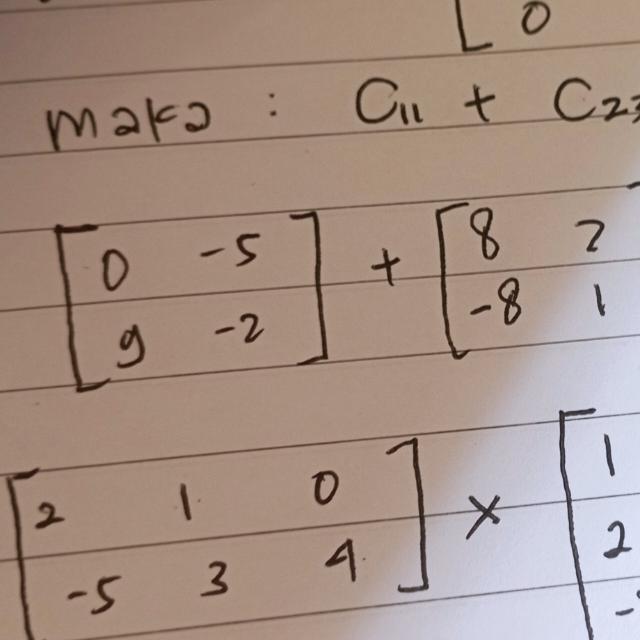 [ 0
maka : C₁₁ + C₂
[ 0 -5 ] + [ 8 2
[ 9 -2 ] [ -8 1
[ 2 1 0 ] × [ 1
[ -5 3 4 ] [ 2
-